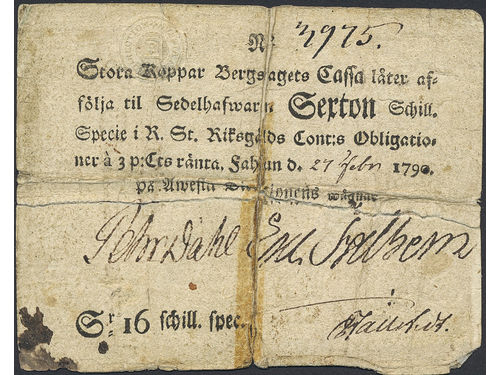 N: 3975.
Stora Koppar Bergslagets Cassa låter af-
följa til Sedelhafwarn Sexton Schill.
Specie i R. St. Riksgälds Cont:s Obligatio-
ner à 3 p:Cts ränta. Fahlun d. 27 Febr 1790.
på Awesta Directionens wägnar
Pehr Dahl Eric Sólberm
Sr 16 schill. spec.